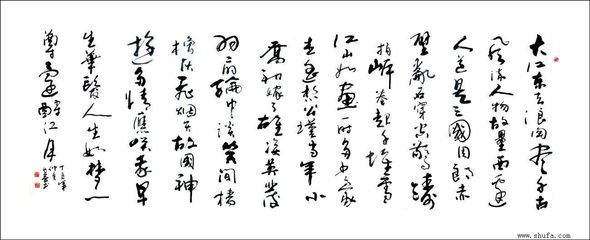 大江东去浪淘尽千古
风流人物故壘西邊
人道是三國周郎赤
壁亂石穿空驚濤
拍岸卷起千堆雪
江山如画一時多少豪
杰遥想公瑾當年小
喬初嫁了雄姿英發
羽扇綸巾談笑间檣
櫓灰飛烟灭故國神
遊多情應笑我早
生華髮人生如夢一
尊還酹江月
www.shufa.com